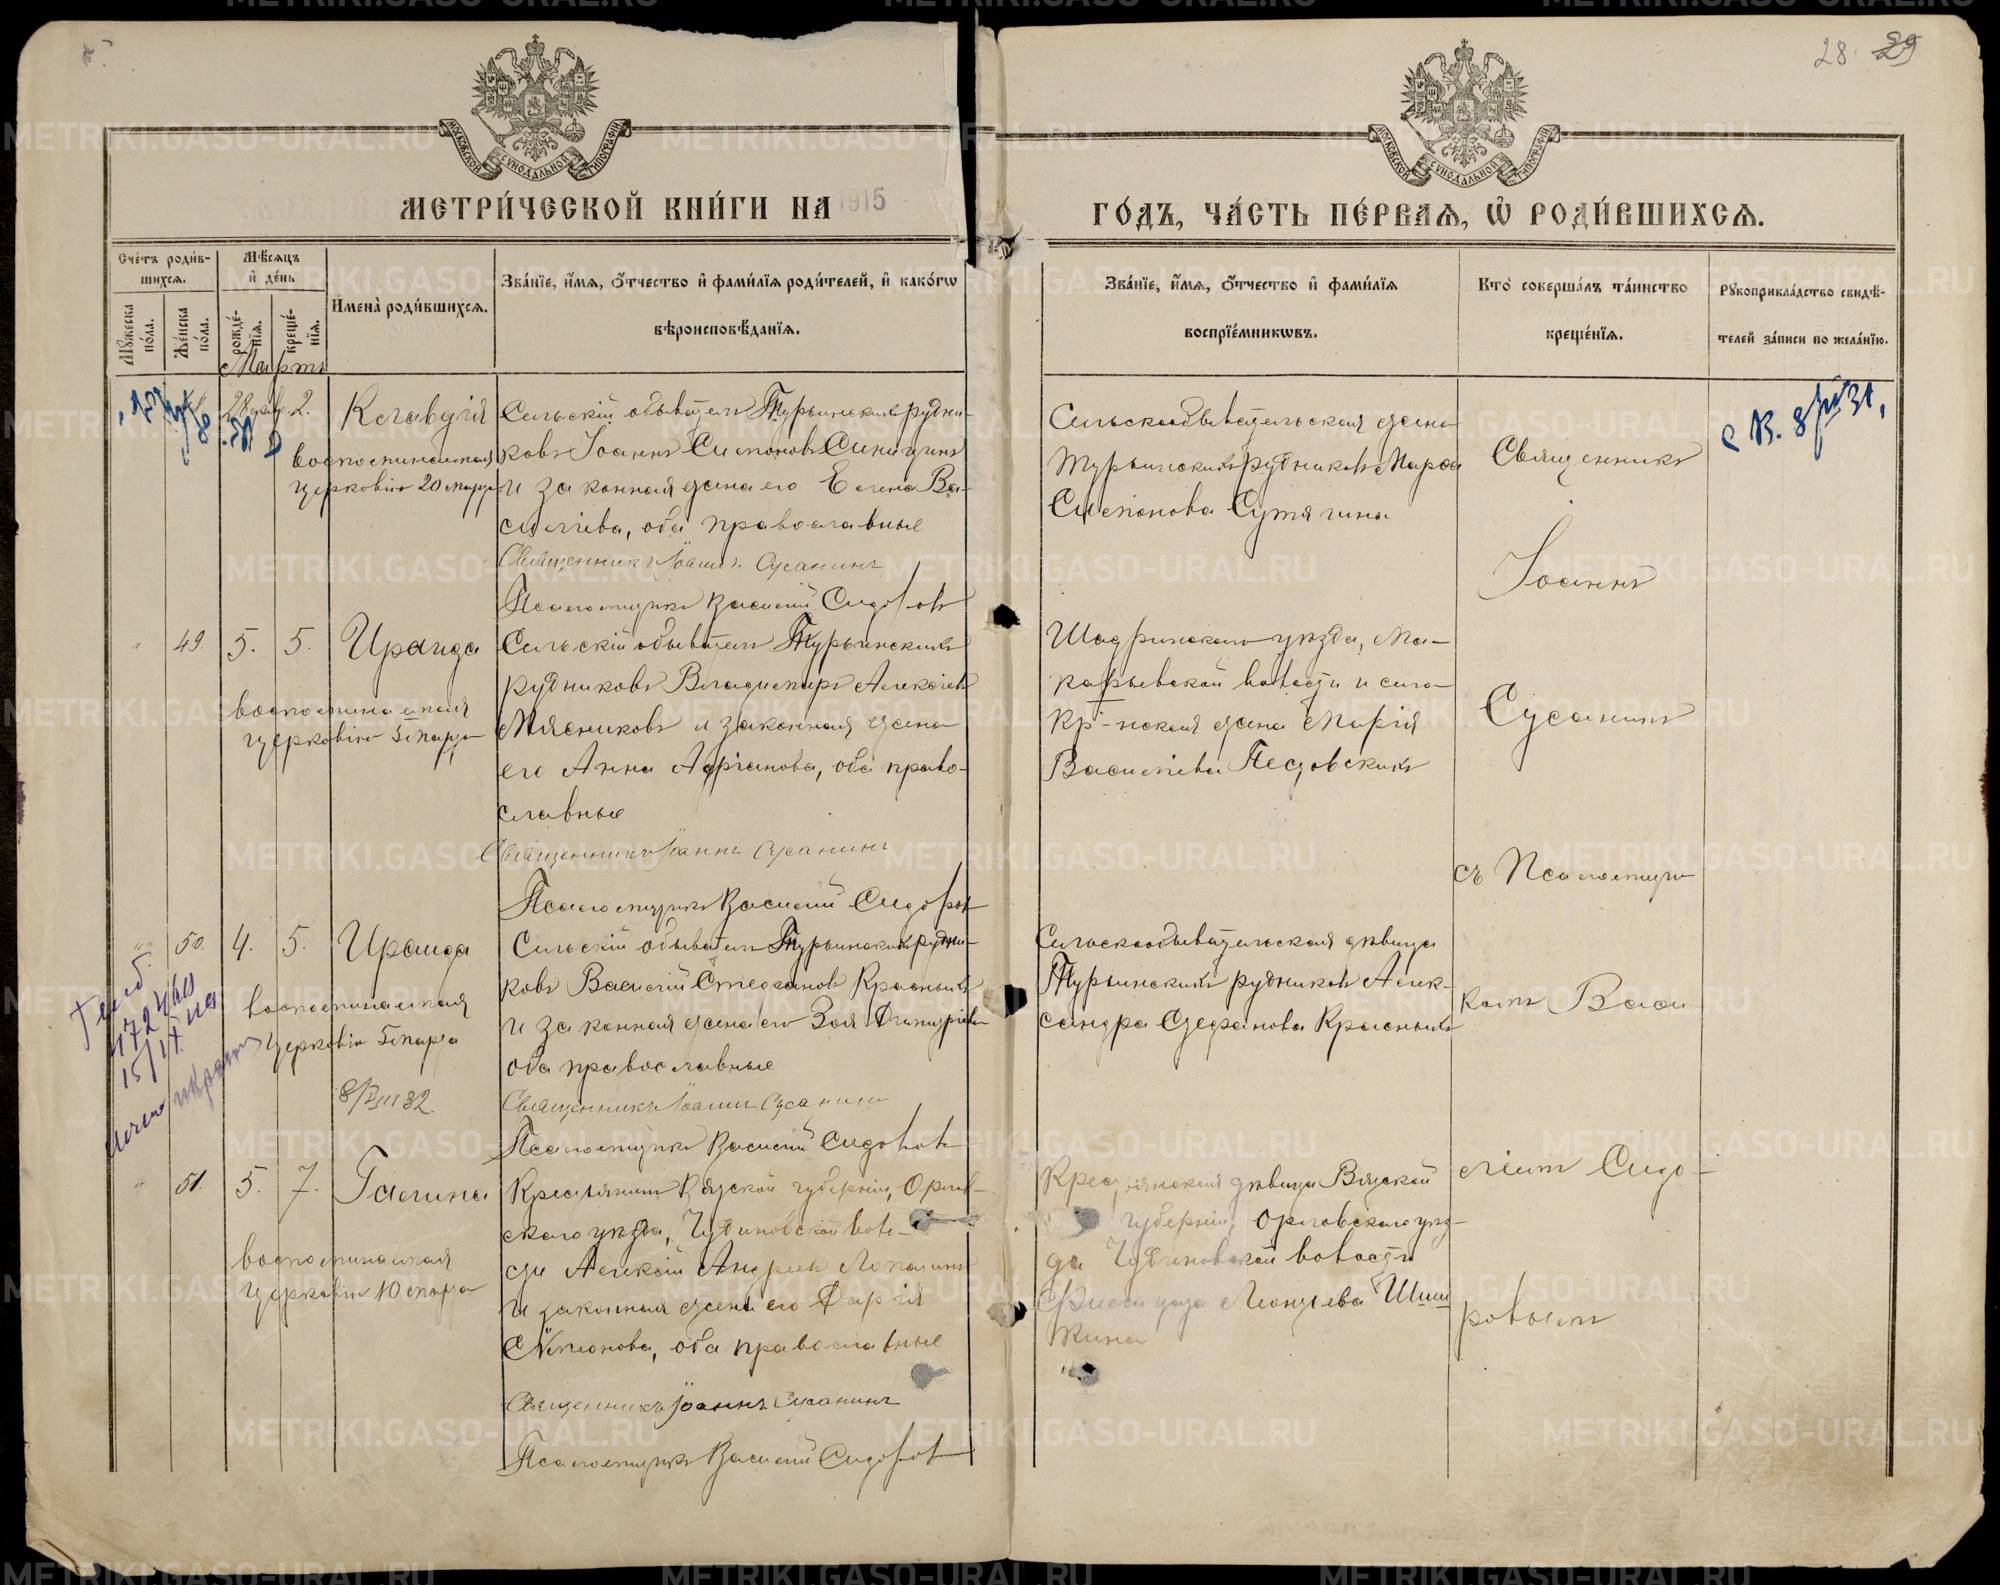 28. 29
МЕТРИ́ЧЕСКОЙ КНИ́ГИ НА 1915
ГО́ДЪ, ЧА́СТЬ ПЕ́РВАѦ, Ѽ РОДИ́ВШИХСѦ.
МОСКОВСКОЙ СѴНОДАЛЬНОЙ ТИПОГРАФІИ
МОСКОВСКОЙ СѴНОДАЛЬНОЙ ТИПОГРАФІИ
Сче́тъ роди́в-
шихсѧ.
Мꙋ́жеска по́ла.
Же́нска по́ла.
Мѣ́сѧцъ
и҆ де́нь
рожде́-
нїѧ.
креще́-
нїѧ.
И҆мена̀ роди́вшихсѧ.
Зва́нїе, и҆́мѧ, ѻ҆́тчество и҆ фами́лїѧ роди́телей, и҆ како́гѡ
вѣроисповѣ́данїѧ.
Зва́нїе, и҆́мѧ, ѻ҆́тчество и҆ фами́лїѧ
воспрїе́мникѡвъ.
Кто̀ соверша́лъ та́инство
креще́нїѧ.
Рꙋкоприкла́дство свидѣ́-
телей за́писи по жела́нїю.
Мартъ
2.
Клавдія
воспоминаемая
церковію 20 марта
Сельскій обыватель Турьинскихъ рудни-
ковъ Іоаннъ Симоновъ Синицинъ
и законная жена его Елена Ва-
сильева, оба православные
Священникъ Іоаннъ Сусанинъ
Псаломщикъ Василій Сидоровъ
Сельскообывательская жена
Турьинскихъ рудниковъ Марфа
Симонова Сутягина
Священникъ
Іоаннъ
49.
5.
5.
Ираида
воспоминаемая
церковію 5 марта
Сельскій обыватель Турьинскихъ
рудниковъ Владиміръ Алексѣевъ
Мясниковъ и законная жена
его Анна Адріанова, оба право-
славные
Священникъ Іоаннъ Сусанинъ
Псаломщикъ Василій Сидоровъ
Шадринскаго уѣзда, Ма-
карьевской волости и села
кр-нская жена Марія
Васильева Пестовскихъ
Сусанинъ
съ Псаломщи-
50.
4.
5.
Ираида
воспоминаемая
церковію 5 марта
8/VIII 32.
Сельскій обыватель Турьинскихъ рудни-
ковъ Василій Стефановъ Красныхъ
и законная жена его Зоя Димитріева
оба православные
Священникъ Іоаннъ Сусанинъ
Псаломщикъ Василій Сидоровъ
Сельскообывательская дѣвица
Турьинскихъ рудниковъ Алек-
сандра Стефанова Красныхъ
комъ Васи-
51.
5.
7.
Галина
воспоминаемая
церковію 10 марта
Крестьянинъ Вятской губерніи, Орлов-
скаго уѣзда, Чудиновской воло-
сти Алексѣй Андреевъ Лопатинъ
и законная жена его Дарія
оба православные
Священникъ Іоаннъ Сусанинъ
Псаломщикъ Василій Сидоровъ
Крестьянская дѣвица Вятской
губерніи, Орловскаго уѣз-
да Чудиновской волости
Леонтьева Шиш-
кина
ліемъ Сидо-
ровымъ